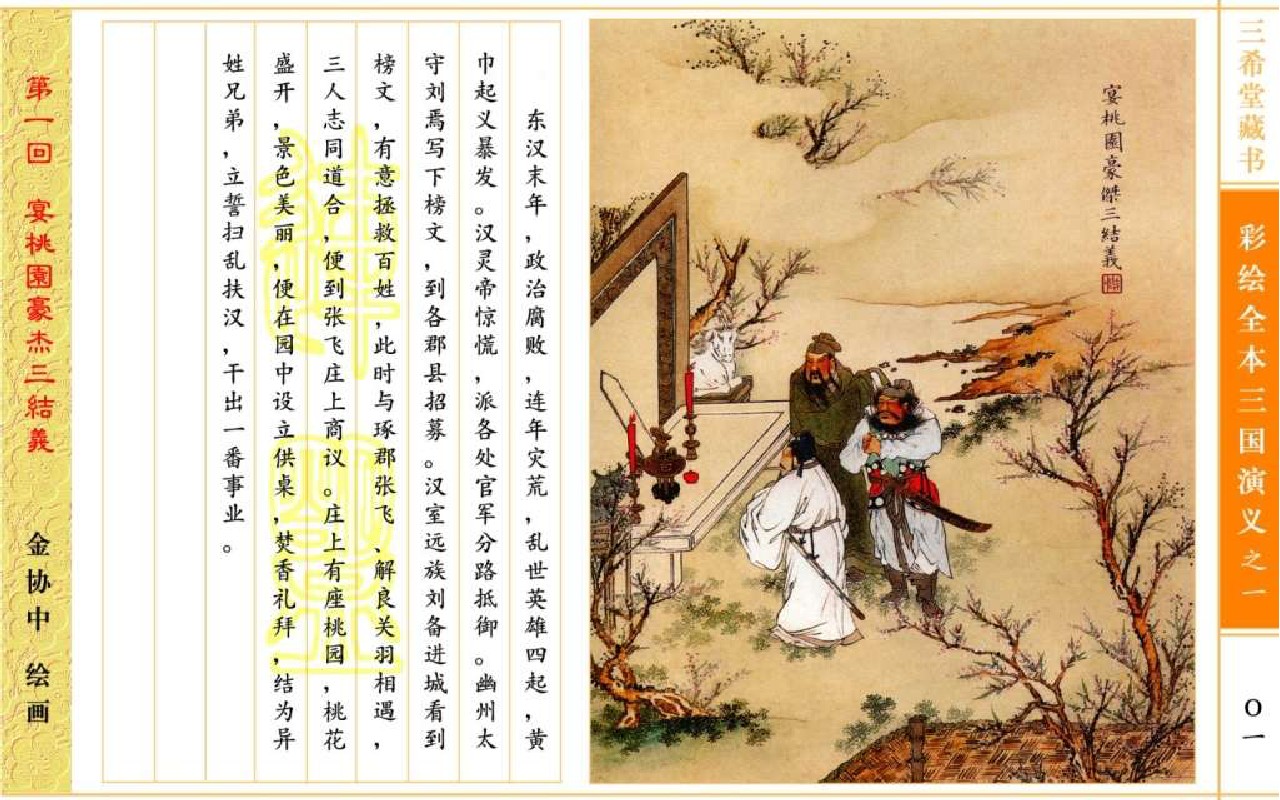 三希堂藏书
彩绘全本三国演义之一
〇一
宴桃園豪傑三結義
东汉末年，政治腐败，连年灾荒，乱世英雄四起，黄
巾起义暴发。汉灵帝惊慌，派各处官军分路抵御。幽州太
守刘焉写下榜文，到各郡县招募。汉室远族刘备进城看到
榜文，有意拯救百姓，此时与琢郡张飞、解良关羽相遇，
三人志同道合，便到张飞庄上商议。庄上有座桃园，桃花
盛开，景色美丽，便在园中设立供桌，焚香礼拜，结为异
姓兄弟，立誓扫乱扶汉，干出一番事业。
第一回 宴桃園豪杰三結義
金协中 绘画